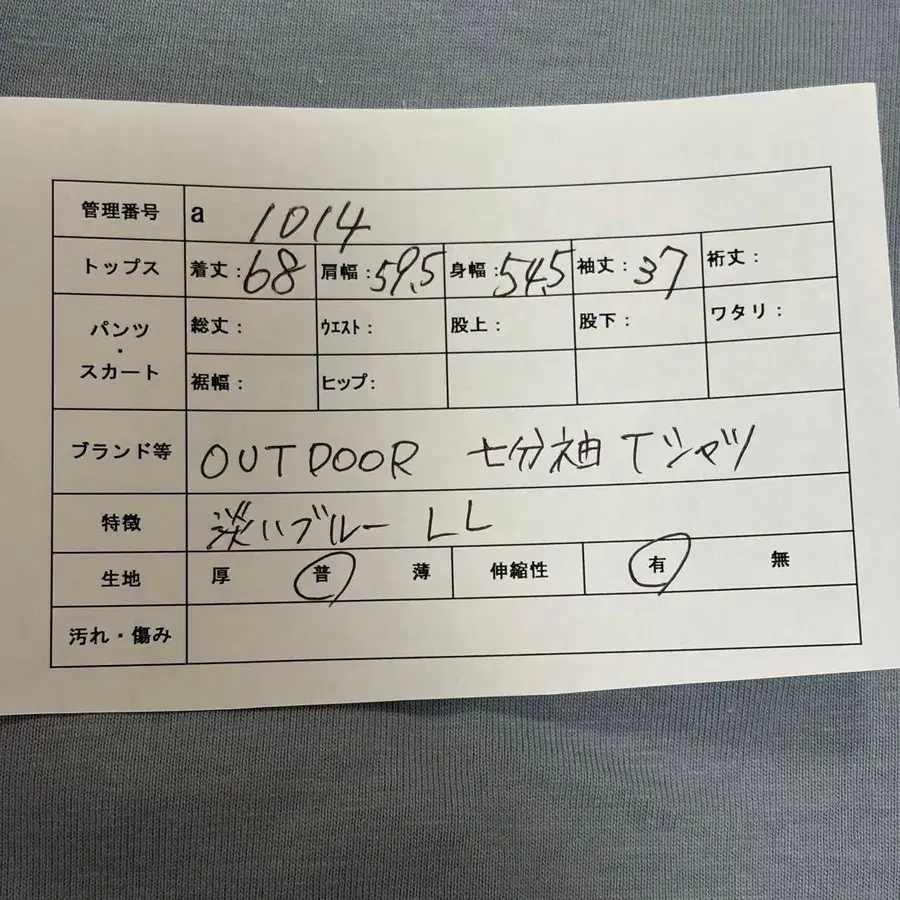 管理番号 a 1014
トップス 着丈:68 肩幅:59.5 身幅:54.5 袖丈:37 裄丈:
パンツ・スカート 総丈: ウエスト: 股上: 股下: ワタリ:
裾幅: ヒップ:
ブランド等 OUTDOOR 七分袖Tシャツ
特徴 淡いブルー LL
生地 厚 普 薄 伸縮性 有 無
汚れ・傷み